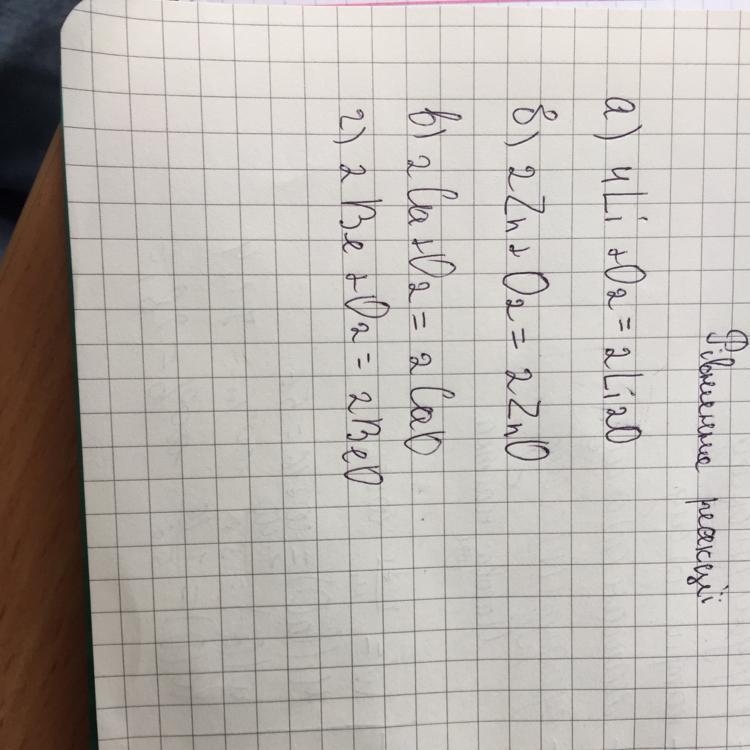 Рівняння реакції
а) 4Li + O2 = 2Li2O
б) 2Zn + O2 = 2ZnO
в) 2Ca + O2 = 2CaO
г) 2Be + O2 = 2BeO